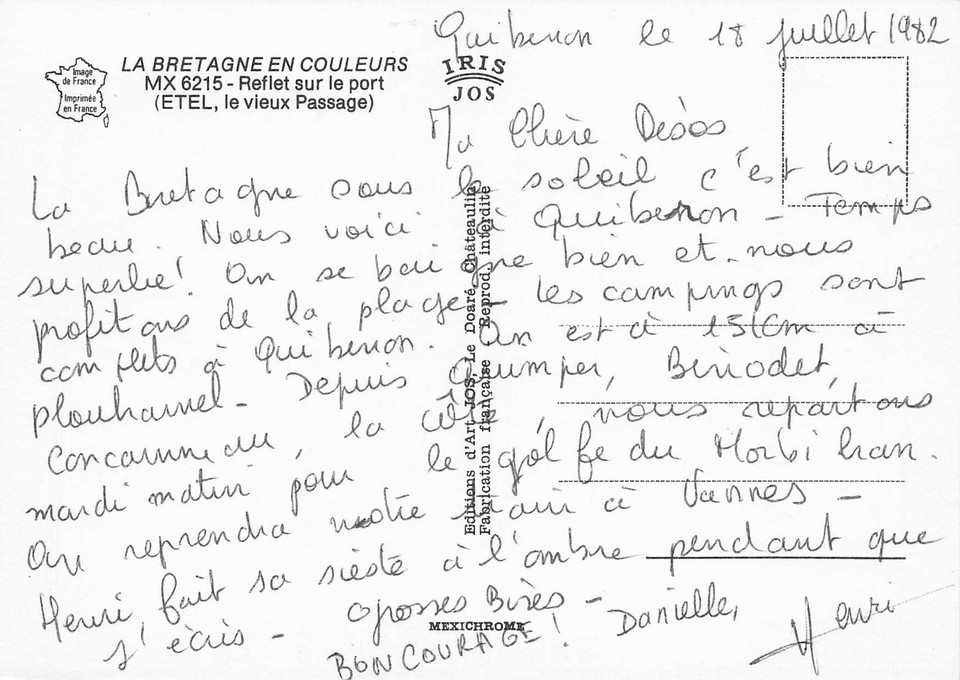 Quiberon le 18 juillet 1982
LA BRETAGNE EN COULEURS
MX 6215 - Reflet sur le port
(ETEL, le vieux Passage)
Image
de France
Imprimée
en France
IRIS
JOS
Ma Chère Désos
La Bretagne sous le soleil c'est bien
beau. Nous voici à Quiberon - Temps
superbe! On se baigne bien et nous
profitons de la plage - Les campings sont
complets à Quiberon. On est à 15km à
Plouharnel - Depuis Quimper, Bénodet,
Concarneau, la côte, nous repartons
mardi matin pour le golfe du Morbihan.
On reprendra notre train à Vannes -
Henri fait sa sieste à l'ombre pendant que
j'écris - Grosses Bises -
BON COURAGE! Danielle, Henri
Editions d'Art JOS, Le Doaré, Châteaulin
Fabrication française Reprod. interdite
MEXICHROME